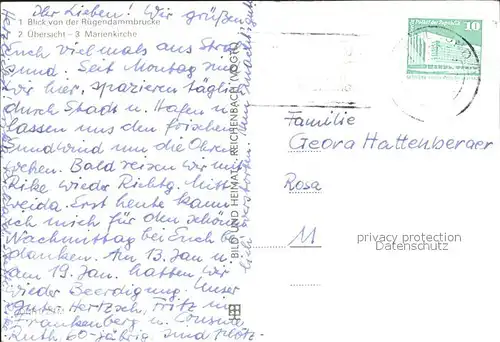 Ihr Lieben! Wir grüßen
1 Blick von der Rügendammbrücke
2 Übersicht - 3 Marienkirche
Euch vielmals aus Stral
sund. Seit Montag sind
wir hier, spazieren täglich
durch Stadt u. Hafen u.
lassen uns den frischen
Sundwind um die Ohren
wehen. Bald reisen wir mit
Rike wieder Richtg. Mitt
weida. Erst heute kann
ich mich für den schönen
Nachmittag bei Euch be
danken. Am 13. Jan u.
am 19. Jan. hatten wir
wieder Beerdigung. Unser
guter Hertzsch, Fritz in
Frankenberg u. Cousine
Ruth, 60-jährig sind plötz-
lich verstorben.
BILD UND HEIMAT · REICHENBACH (VOGTL)
10
Familie
Georg Hattenberger
Rosa
11
privacy protection
Datenschutz